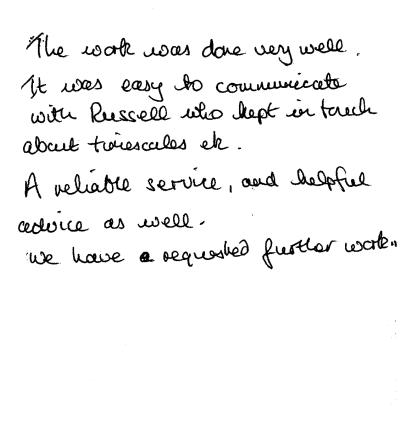 The work was done very well.
It was easy to communicate
with Russell who kept in touch
about timescales etc.
A reliable service, and helpful
advice as well.
We have requested further work.